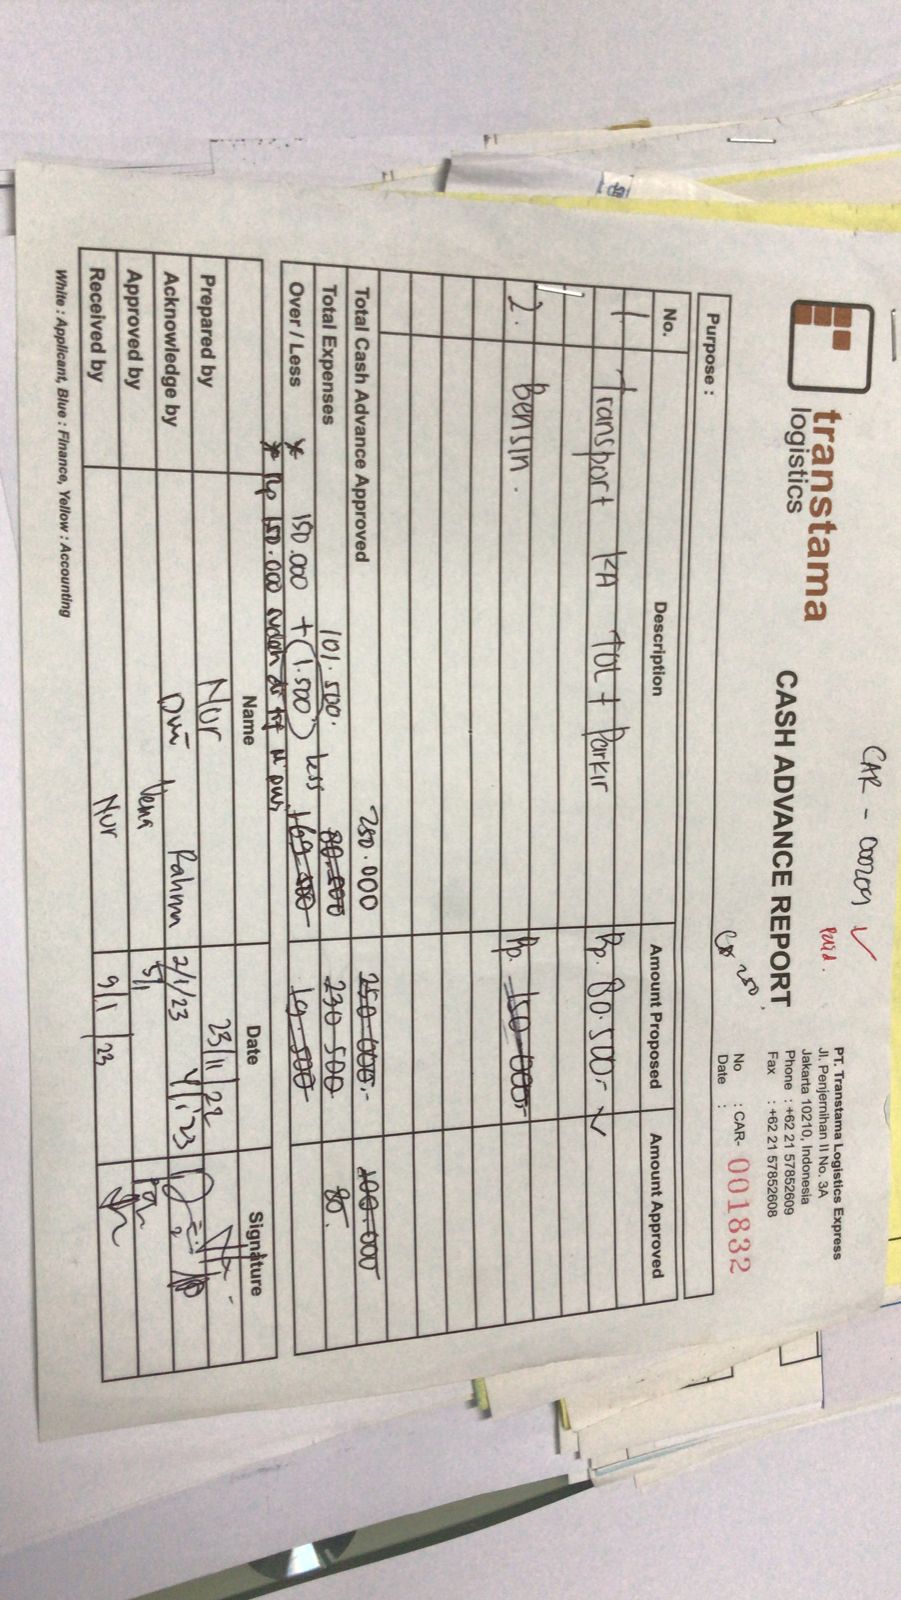 CAR - 000209 ✓
Paid.
transtama
logistics
CASH ADVANCE REPORT
PT. Transtama Logistics Express
Jl. Penjernihan II No. 3A
Jakarta 10210, Indonesia
Phone : +62 21 57852609
Fax : +62 21 57852608
No : CAR- 001832
Date :
250
Purpose :
No. Description Amount Proposed Amount Approved
1. Transport KA TOL + Parkir Rp. 80.500,- ✓
2. Bensin. Rp. 150.000,-
Total Cash Advance Approved 250.000 250.000,- 100.000
Total Expenses 101.500. 80.000 230.500 80.
Over / Less * 150.000 + (1.500) less 169.500 19.500
* Rp 150.000 sudah di
Name Date Signature
Prepared by Nur 23/11/22
Acknowledge by Dwi Rahma 2/1/23
Approved by 5/1
Received by Nur 9/1/23
White : Applicant, Blue : Finance, Yellow : Accounting